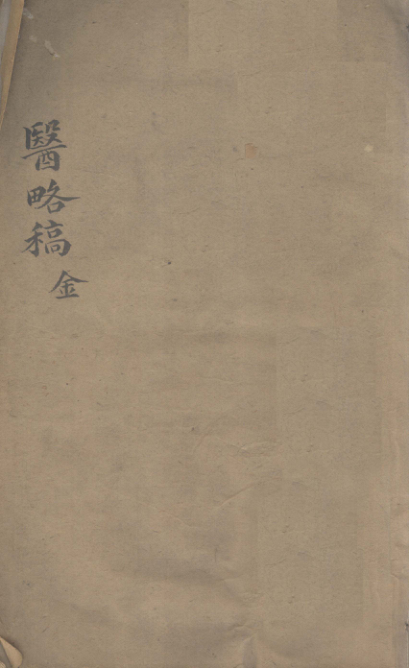 醫略稿
金